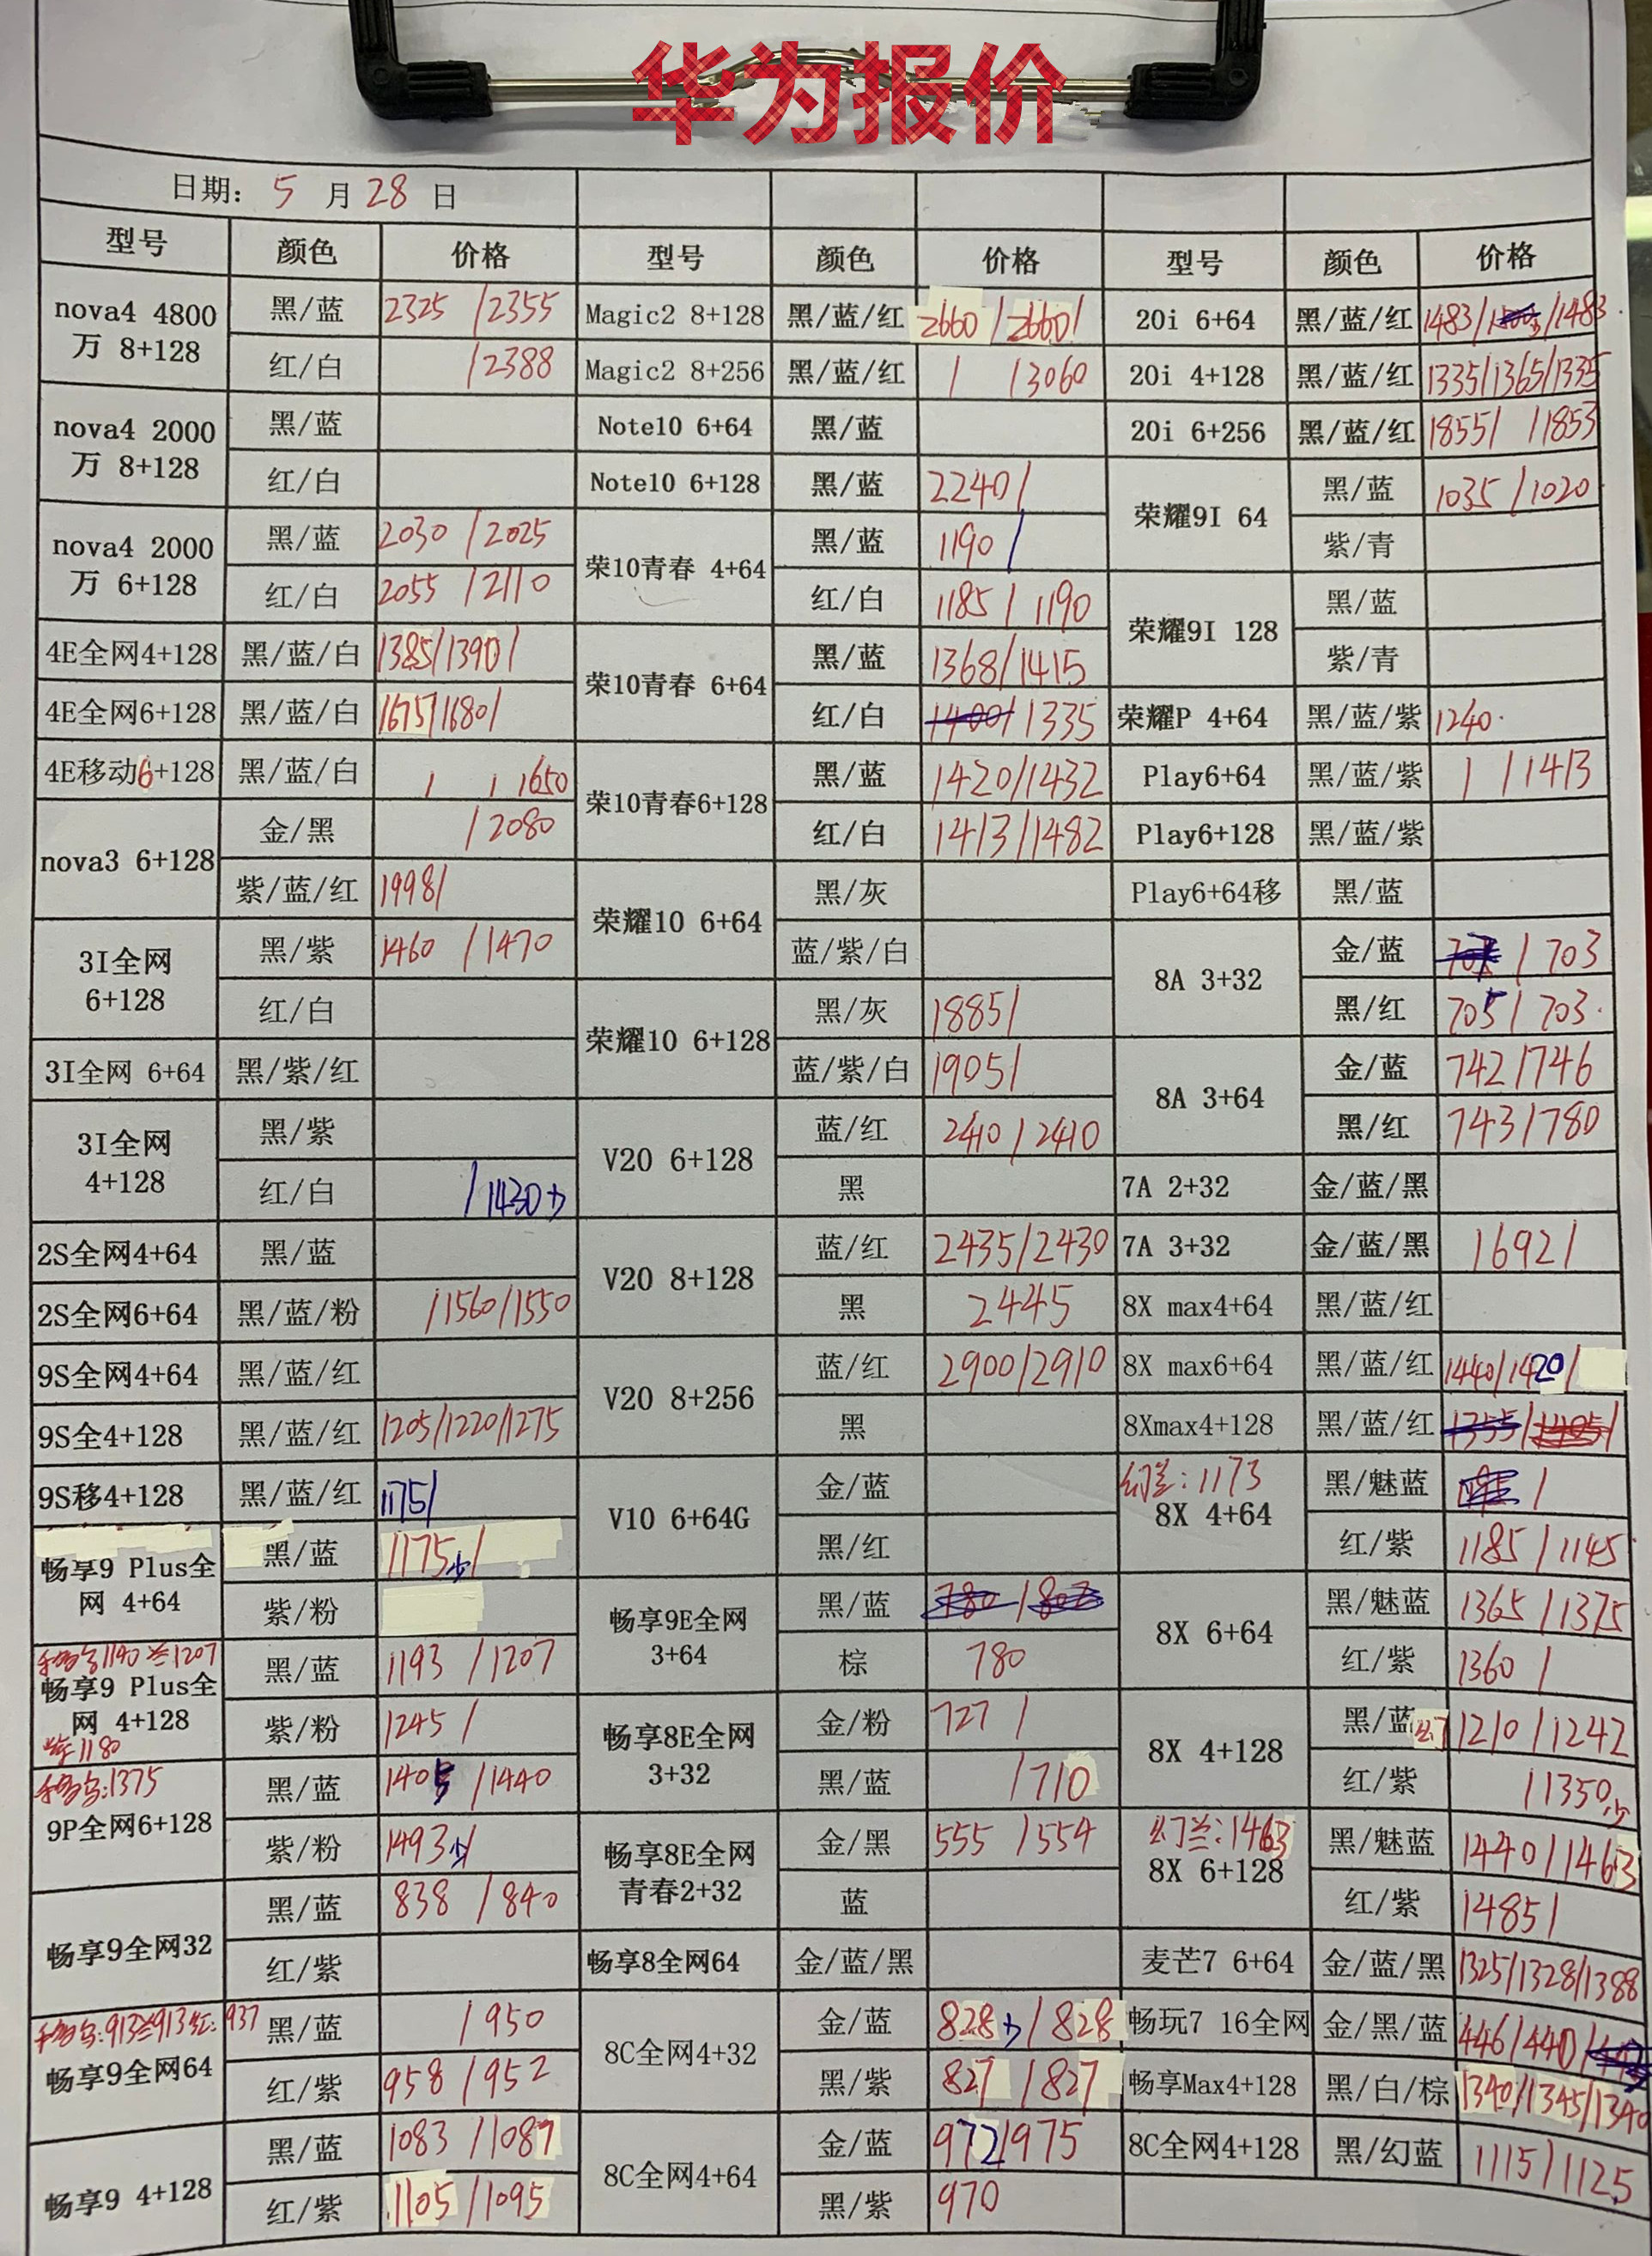 华为报价
日期: 5 月 28 日
型号 颜色 价格 型号 颜色 价格 型号 颜色 价格
nova4 4800万 8+128 黑/蓝 2325 /2355 Magic2 8+128 黑/蓝/红 2660/2660/ 20i 6+64 黑/蓝/红 1483/ /1483
红/白 /2388 Magic2 8+256 黑/蓝/红 / /3060 20i 4+128 黑/蓝/红 1335/1365/1335
nova4 2000万 8+128 黑/蓝 Note10 6+64 黑/蓝 20i 6+256 黑/蓝/红 1855/ /1853
红/白 Note10 6+128 黑/蓝 2240/ 荣耀9I 64 黑/蓝 1035/1020
nova4 2000万 6+128 黑/蓝 2030 /2025 荣10青春 4+64 黑/蓝 1190/ 紫/青
红/白 2055 /2110 红/白 1185/1190 荣耀9I 128 黑/蓝
4E全网4+128 黑/蓝/白 1385/1390/ 荣10青春 6+64 黑/蓝 1368/1415 紫/青
4E全网6+128 黑/蓝/白 1675/1680/ 红/白 1400/1335 荣耀P 4+64 黑/蓝/紫 1240
4E移动6+128 黑/蓝/白 / /1650 荣10青春6+128 黑/蓝 1420/1432 Play6+64 黑/蓝/紫 / /1413
nova3 6+128 金/黑 /2080 红/白 1413/1482 Play6+128 黑/蓝/紫
紫/蓝/红 1998/ 荣耀10 6+64 黑/灰 Play6+64移 黑/蓝
3I全网 6+128 黑/紫 1460 /1470 蓝/紫/白 8A 3+32 金/蓝 /703
红/白 荣耀10 6+128 黑/灰 1885/ 黑/红 705/703
3I全网 6+64 黑/紫/红 蓝/紫/白 1905/ 8A 3+64 金/蓝 742/746
3I全网 4+128 黑/紫 V20 6+128 蓝/红 2410/2410 黑/红 743/780
红/白 /1430少 黑 7A 2+32 金/蓝/黑
2S全网4+64 黑/蓝 V20 8+128 蓝/红 2435/2430 7A 3+32 金/蓝/黑 1692/
2S全网6+64 黑/蓝/粉 /1560/1550 黑 2445 8X max4+64 黑/蓝/红
9S全网4+64 黑/蓝/红 V20 8+256 蓝/红 2900/2910 8X max6+64 黑/蓝/红 1440/1420/
9S全4+128 黑/蓝/红 1205/1220/1275 黑 8Xmax4+128 黑/蓝/红 1355/1405/
9S移4+128 黑/蓝/红 1175/ V10 6+64G 金/蓝 幻兰:1173 8X 4+64 黑/魅蓝 /
畅享9 Plus全网 4+64 黑/蓝 1175少/ 黑/红 红/紫 1185/1145
紫/粉 畅享9E全网 3+64 黑/蓝 780/802 8X 6+64 黑/魅蓝 1365/1375
1190兰1207 畅享9 Plus全网 4+128 1180 黑/蓝 1193 /1207 棕 780 红/紫 1360 /
紫/粉 1245 / 畅享8E全网 3+32 金/粉 727 / 8X 4+128 黑/蓝 幻1210/1242
:1375 9P全网6+128 黑/蓝 1405 /1440 黑/蓝 /710 红/紫 /1350少
紫/粉 1493少/ 畅享8E全网 青春2+32 金/黑 555 /554 幻兰:1463 8X 6+128 黑/魅蓝 1440/1463
畅享9全网32 黑/蓝 838 /840 蓝 红/紫 1485/
红/紫 畅享8全网64 金/蓝/黑 麦芒7 6+64 金/蓝/黑 1325/1328/1388
:913兰913红:937 畅享9全网64 黑/蓝 /950 8C全网4+32 金/蓝 828少/828 畅玩7 16全网 金/黑/蓝 446/440/
红/紫 958 /952 黑/紫 827 /827 畅享Max4+128 黑/白/棕 1340/1345/1340
畅享9 4+128 黑/蓝 1083 /1087 8C全网4+64 金/蓝 972/975 8C全网4+128 黑/幻蓝 1115/1125
红/紫 1105/1095 黑/紫 970